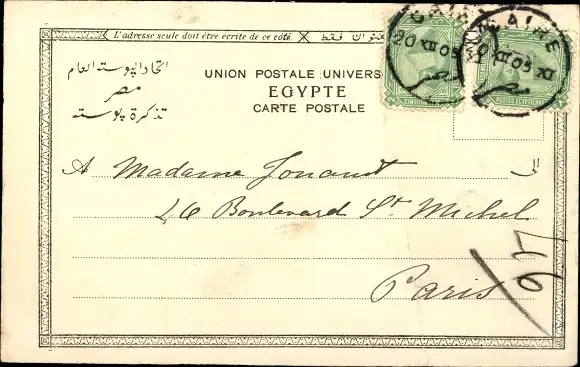 L'adresse seule doit être écrite de ce côté. عنوان فقط
اتحاد البوستة العام
مصر
تذكرة بوسته
UNION POSTALE UNIVERS
EGYPTE
CARTE POSTALE
20 XII 05
XII 05 XI
مصر
A Madame Jouaust
الى
46 Boulevard St Michel
Paris